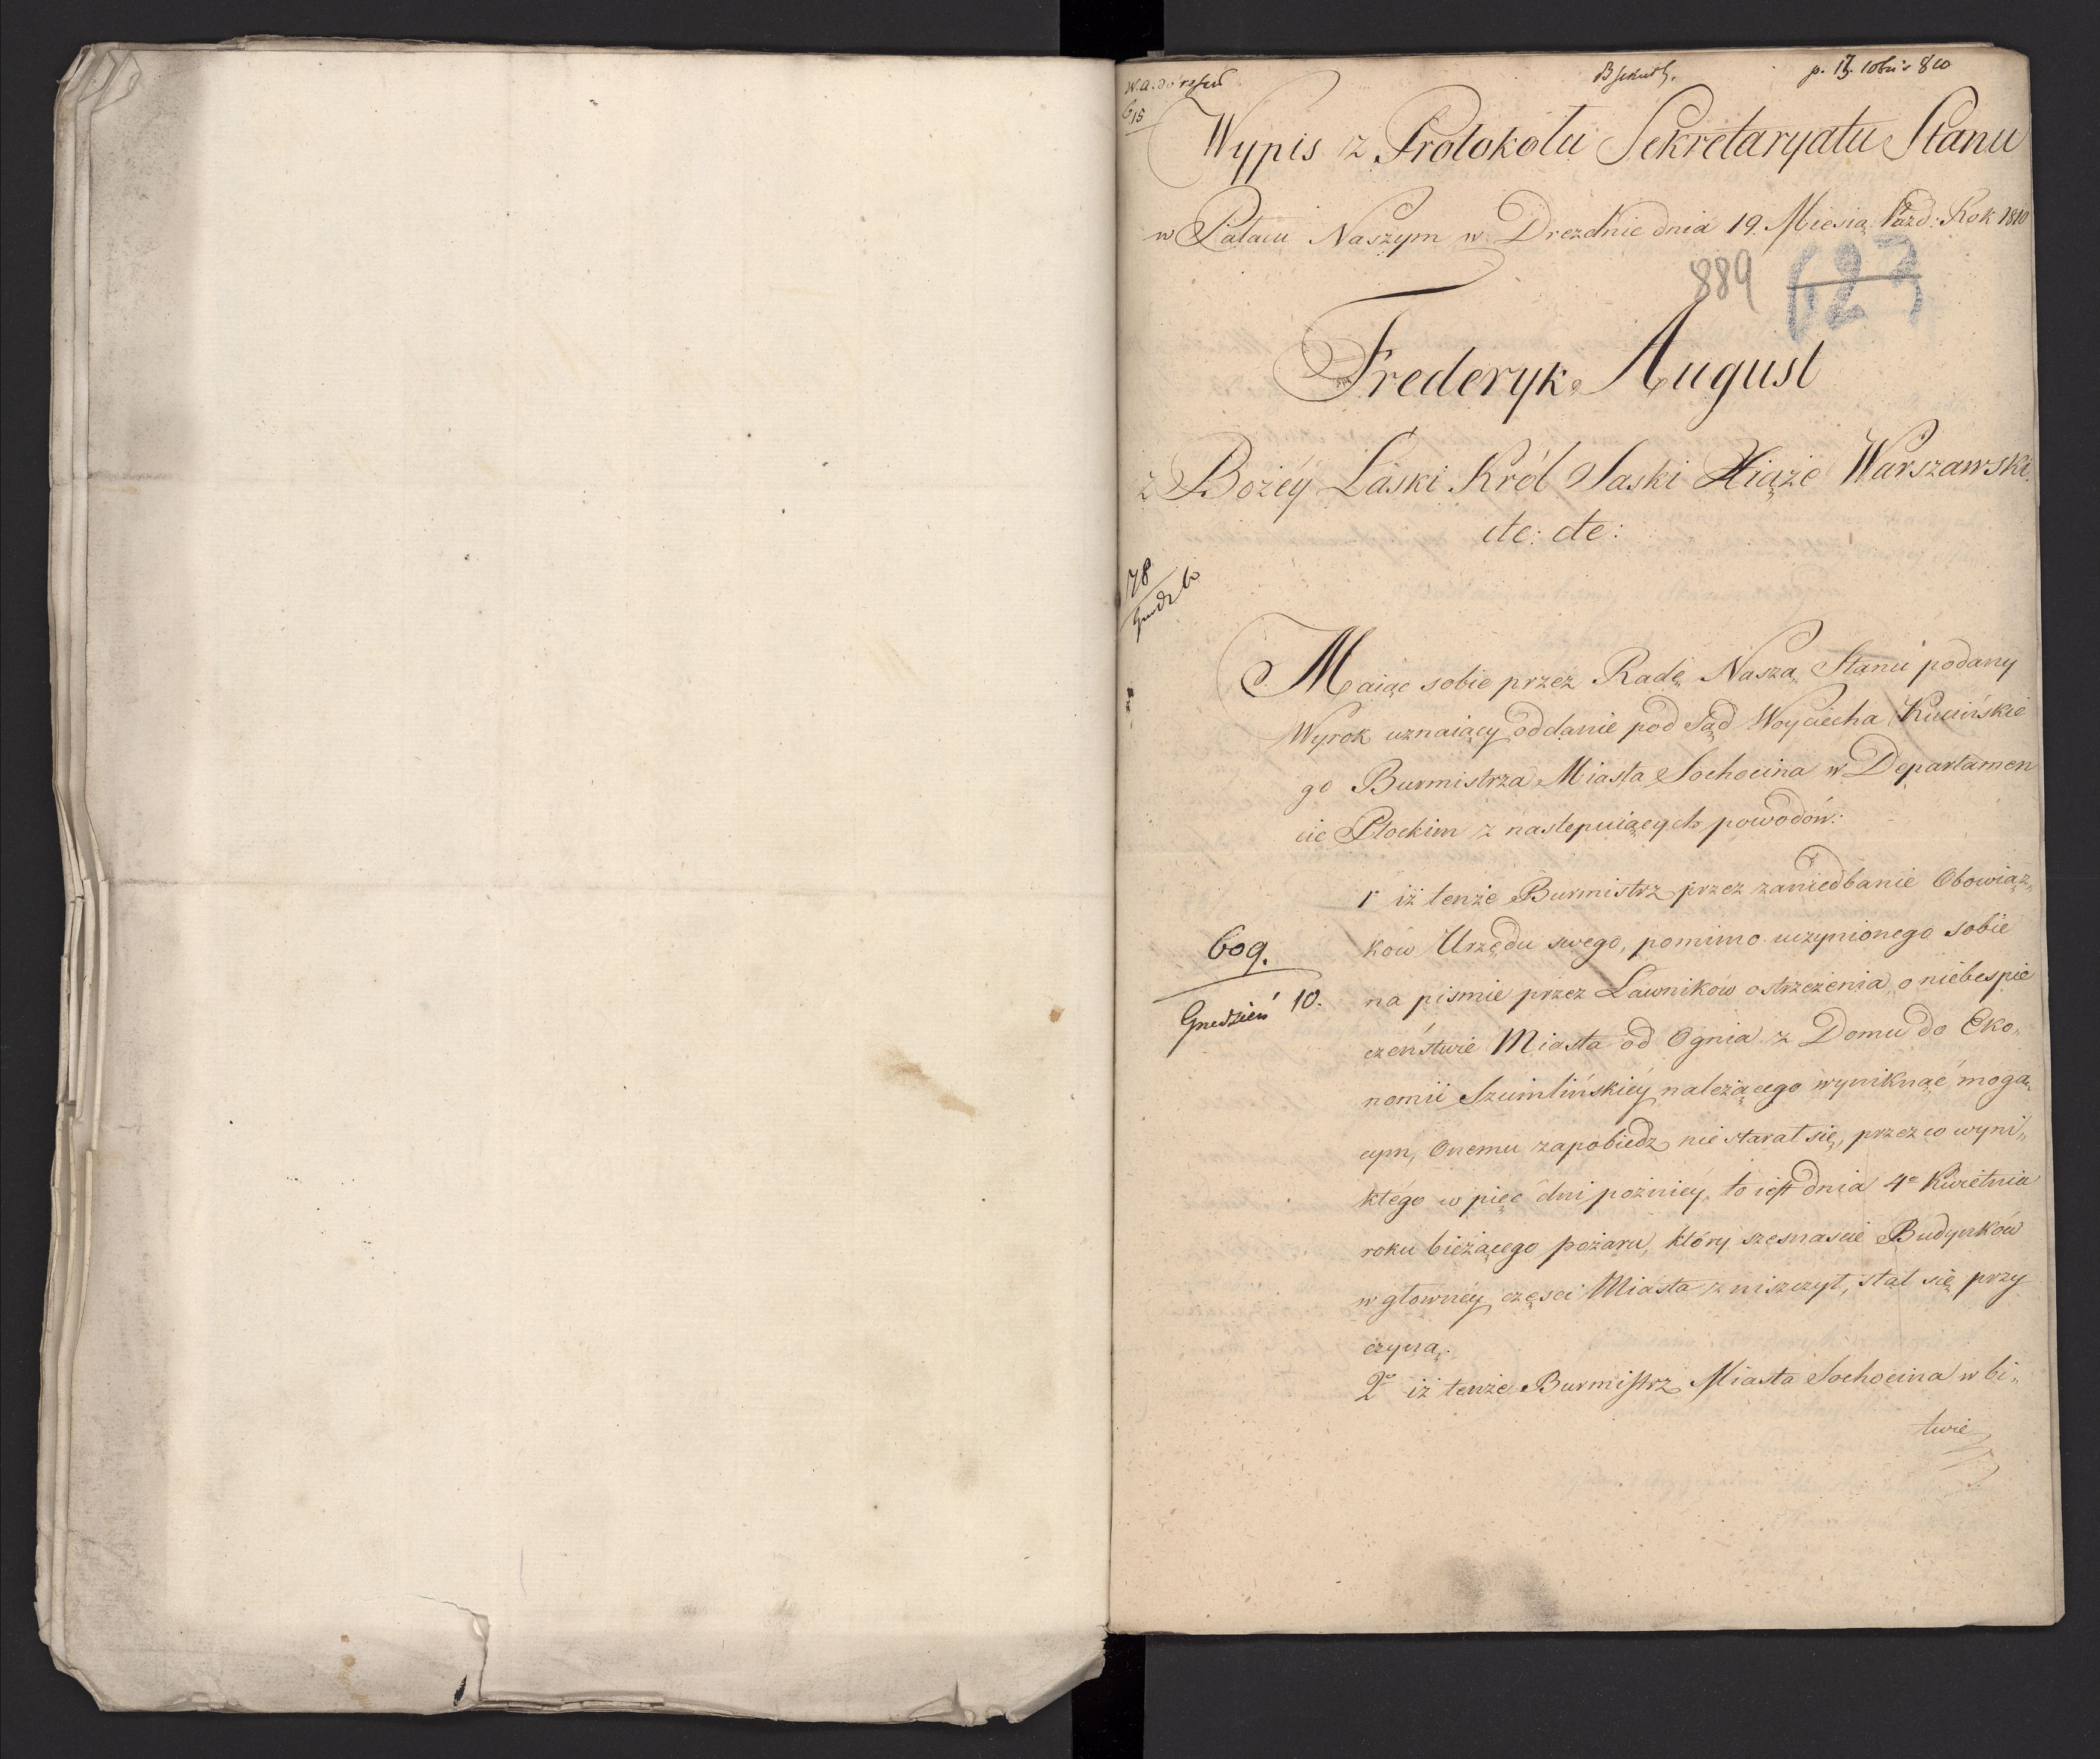 p. 13. 10bris 810
615
Wypis z Protokołu Sekretaryatu Stanu
w Pałacu Naszym w Dreznie dnia 19. Miesią: Paźd: Rok 1810
889 623
Frederyk August
z Bożey Łaski Król Saski Xiąże Warszawski
etc: etc:
178
Grudz
Maiąc sobie przez Radę Naszą Stanu podany
Wyrok uznaiący oddanie pod Sąd Woyciecha Kucińskie
go Burmistrza Miasta Sochocina w Departamen
cie Płockim z następuiących powodów:
1º iż tenże Burmistrz przez zaniedbanie Obowiąz„
ków Urzędu swego, pomimo uczynionego sobie
609.
na pismie przez Ławników ostrzeżenia, o niebespie
Grudzień 10.
czeństwie Miasta od Ognia z Domu do Eko„
nomii Szumlińskiey należącego wyniknąć mogą„
cym, Onemu zapobiedz nie starał się, przez co wyni„
kłégo w pięc dni pozniey, to iest dnia 4º Kwietnia
roku bieżącego pożaru, który szesnascie Budynków
w głowney częsci Miasta zniszczył, stał się przy
czyną.
2º iż tenże Burmistrz Miasta Sochocina w bi„
twie